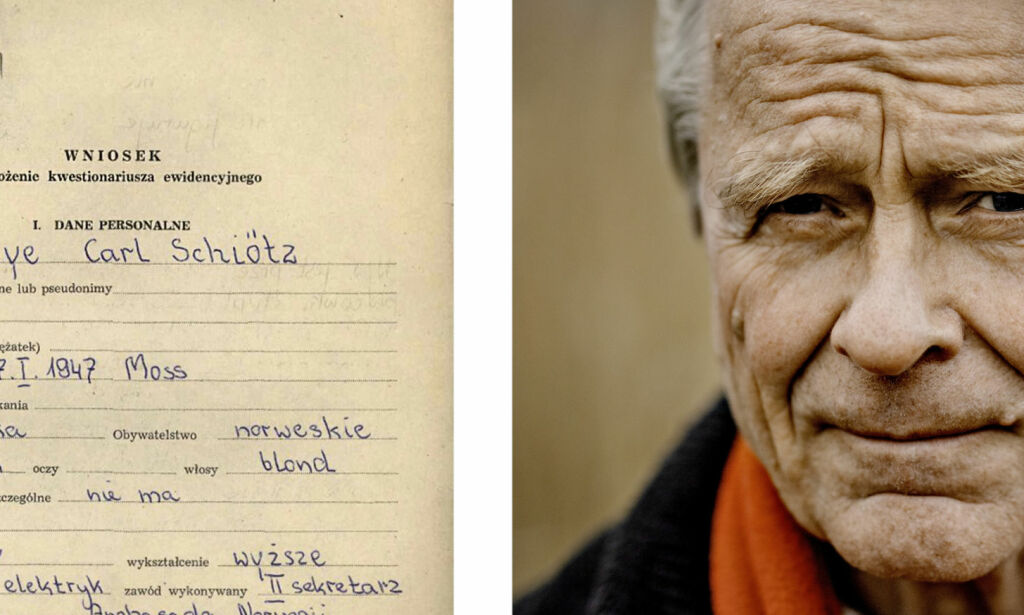 WNIOSEK
ożenie kwestionariusza ewidencyjnego
I. DANE PERSONALNE
ye Carl Schiötz
ne lub pseudonimy
ężatek)
7.I.1947 Moss
kania
ka Obywatelstwo norweskie
oczy włosy blond
zczególne nie ma
wykształcenie wyższe
elektryk zawód wykonywany II sekretarz
Norwegii